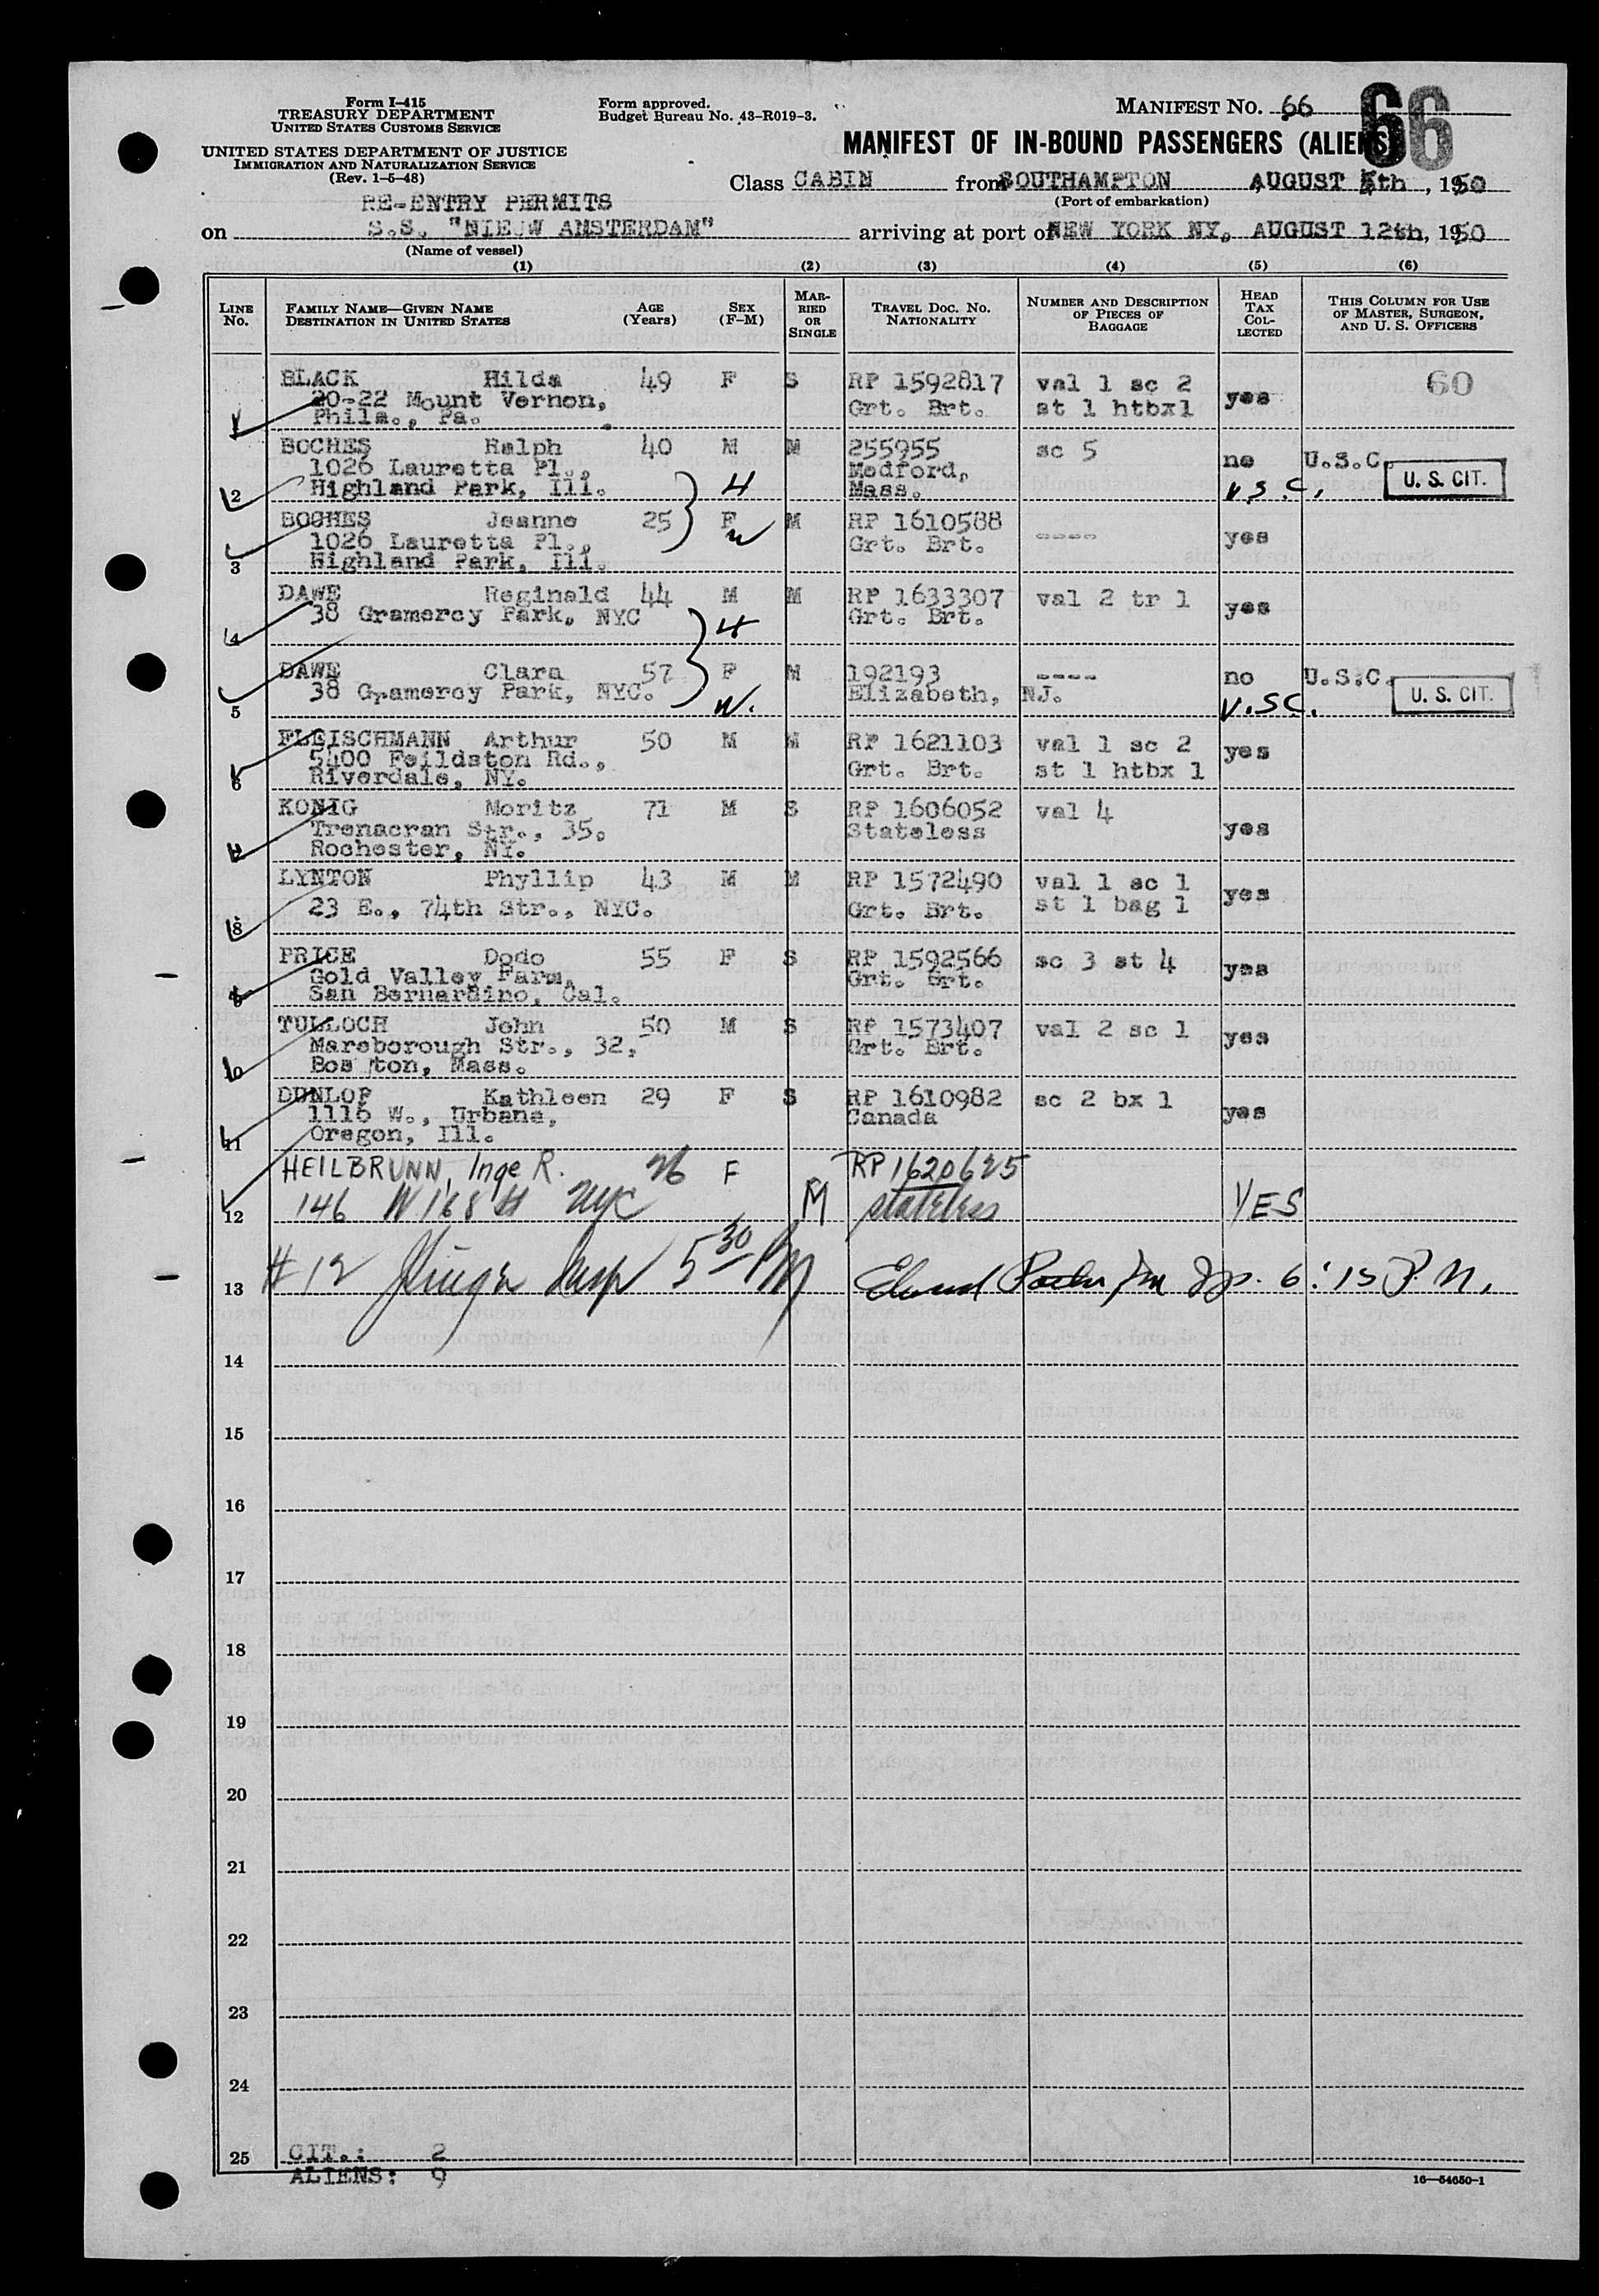 Form I-415
TREASURY DEPARTMENT
UNITED STATES CUSTOMS SERVICE
UNITED STATES DEPARTMENT OF JUSTICE
IMMIGRATION AND NATURALIZATION SERVICE
(Rev. 1-5-48)
Form approved.
Budget Bureau No. 43-R019-3.
MANIFEST NO. 66
66
MANIFEST OF IN-BOUND PASSENGERS (ALIENS)
Class CABIN from SOUTHAMPTON AUGUST 5th, 1950
(Port of embarkation)
RE-ENTRY PERMITS
on S.S. "NIEUW AMSTERDAM" arriving at port of NEW YORK NY, AUGUST 12th, 1950
(Name of vessel)
(1) (2) (3) (4) (5) (6)
LINE No.
FAMILY NAME—GIVEN NAME
DESTINATION IN UNITED STATES
AGE (Years)
SEX (F-M)
MARRIED OR SINGLE
TRAVEL DOC. NO. NATIONALITY
NUMBER AND DESCRIPTION OF PIECES OF BAGGAGE
HEAD TAX COLLECTED
THIS COLUMN FOR USE OF MASTER, SURGEON, AND U. S. OFFICERS
BLACK Hilda 49 F S RP 1592817 val 1 sc 2 60
20-22 Mount Vernon, Grt. Brt. st 1 htbx1 yes
1 Phila., Pa.
BOCHES Ralph 40 M M 255955 sc 5
1026 Lauretta Pl., Medford, no U.S.C.
2 Highland Park, Ill. H Mass. U.S.C. U. S. CIT.
BOCHES Jeanne 25 F M RP 1610588
1026 Lauretta Pl., W Grt. Brt. ---- yes
3 Highland Park, Ill.
DAWE Reginald 44 M M RP 1633307 val 2 tr 1
38 Gramercy Park, NYC Grt. Brt. yes
4 H
DAWE Clara 57 F M 192193 ---- no U.S.C.
38 Gramercy Park, NYC. Elizabeth, NJ. U. S. CIT.
5 W. U.S.C.
FLEISCHMANN Arthur 50 M M RP 1621103 val 1 sc 2
5400 Feildston Rd., Grt. Brt. st 1 htbx 1 yes
6 Riverdale, NY.
KONIG Moritz 71 M S RP 1606052 val 4
Trenacran Str., 35. Stateless yes
7 Rochester, NY.
LYNTON Phyllip 43 M M RP 1572490 val 1 sc 1
23 E., 74th Str., NYC. Grt. Brt. st 1 bag 1 yes
8
PRICE Dodo 55 F S RP 1592566 sc 3 st 4
Gold Valley Farm, Grt. Brt. yes
9 San Bernardino, Cal.
TULLOCH John 50 M S RP 1573407 val 2 sc 1
Marsborough Str., 32, Grt. Brt. yes
10 Boston, Mass.
DUNLOP Kathleen 29 F S RP 1610982 sc 2 bx 1
1116 W., Urbana, Canada yes
11 Oregon, Ill.
HEILBRUNN, Inge R. 26 F RP 1620625
12 146 W 168 St NYC M stateless YES
13 #12 Insp 5 30 PM Insp. 6:15 P.M.
14
15
16
17
18
19
20
21
22
23
24
25 CIT.: 2
ALIENS: 9
16—54650-1